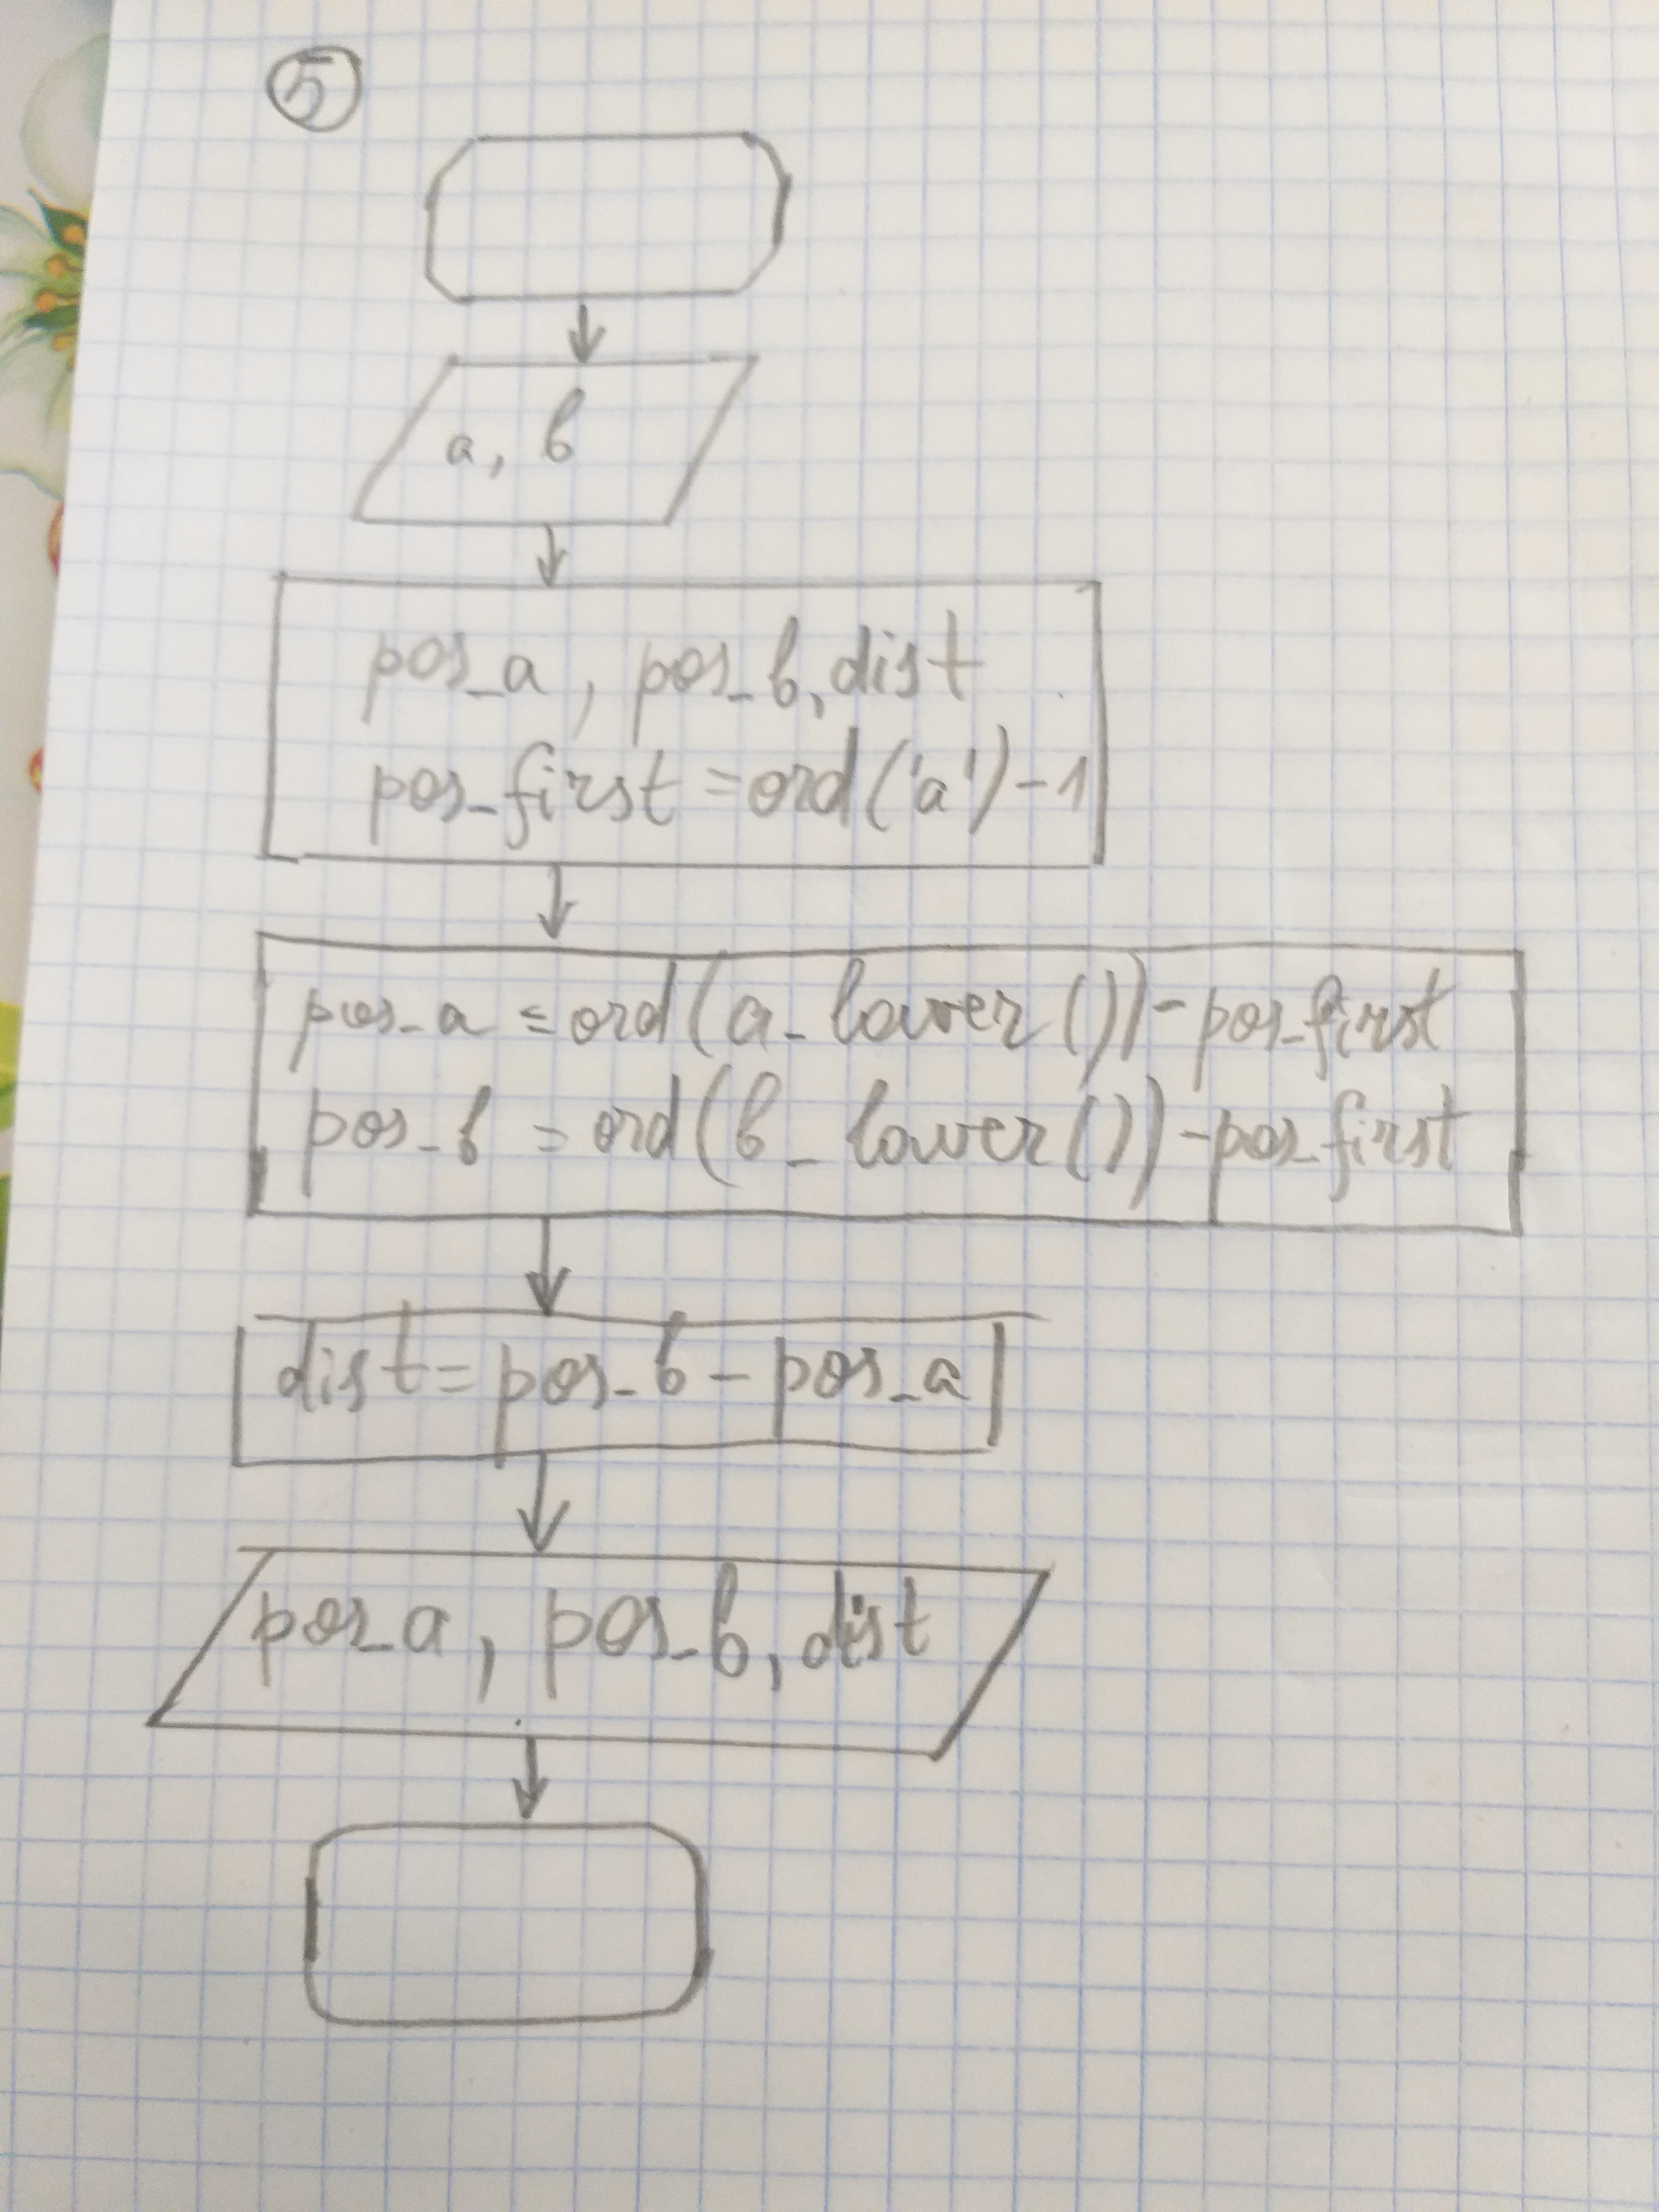 5
a, b
pos_a, pos_b, dist
pos_first = ord('a') - 1
pos_a = ord(a_lower()) - pos_first
pos_b = ord(b_lower()) - pos_first
dist = pos_b - pos_a
pos_a, pos_b, dist